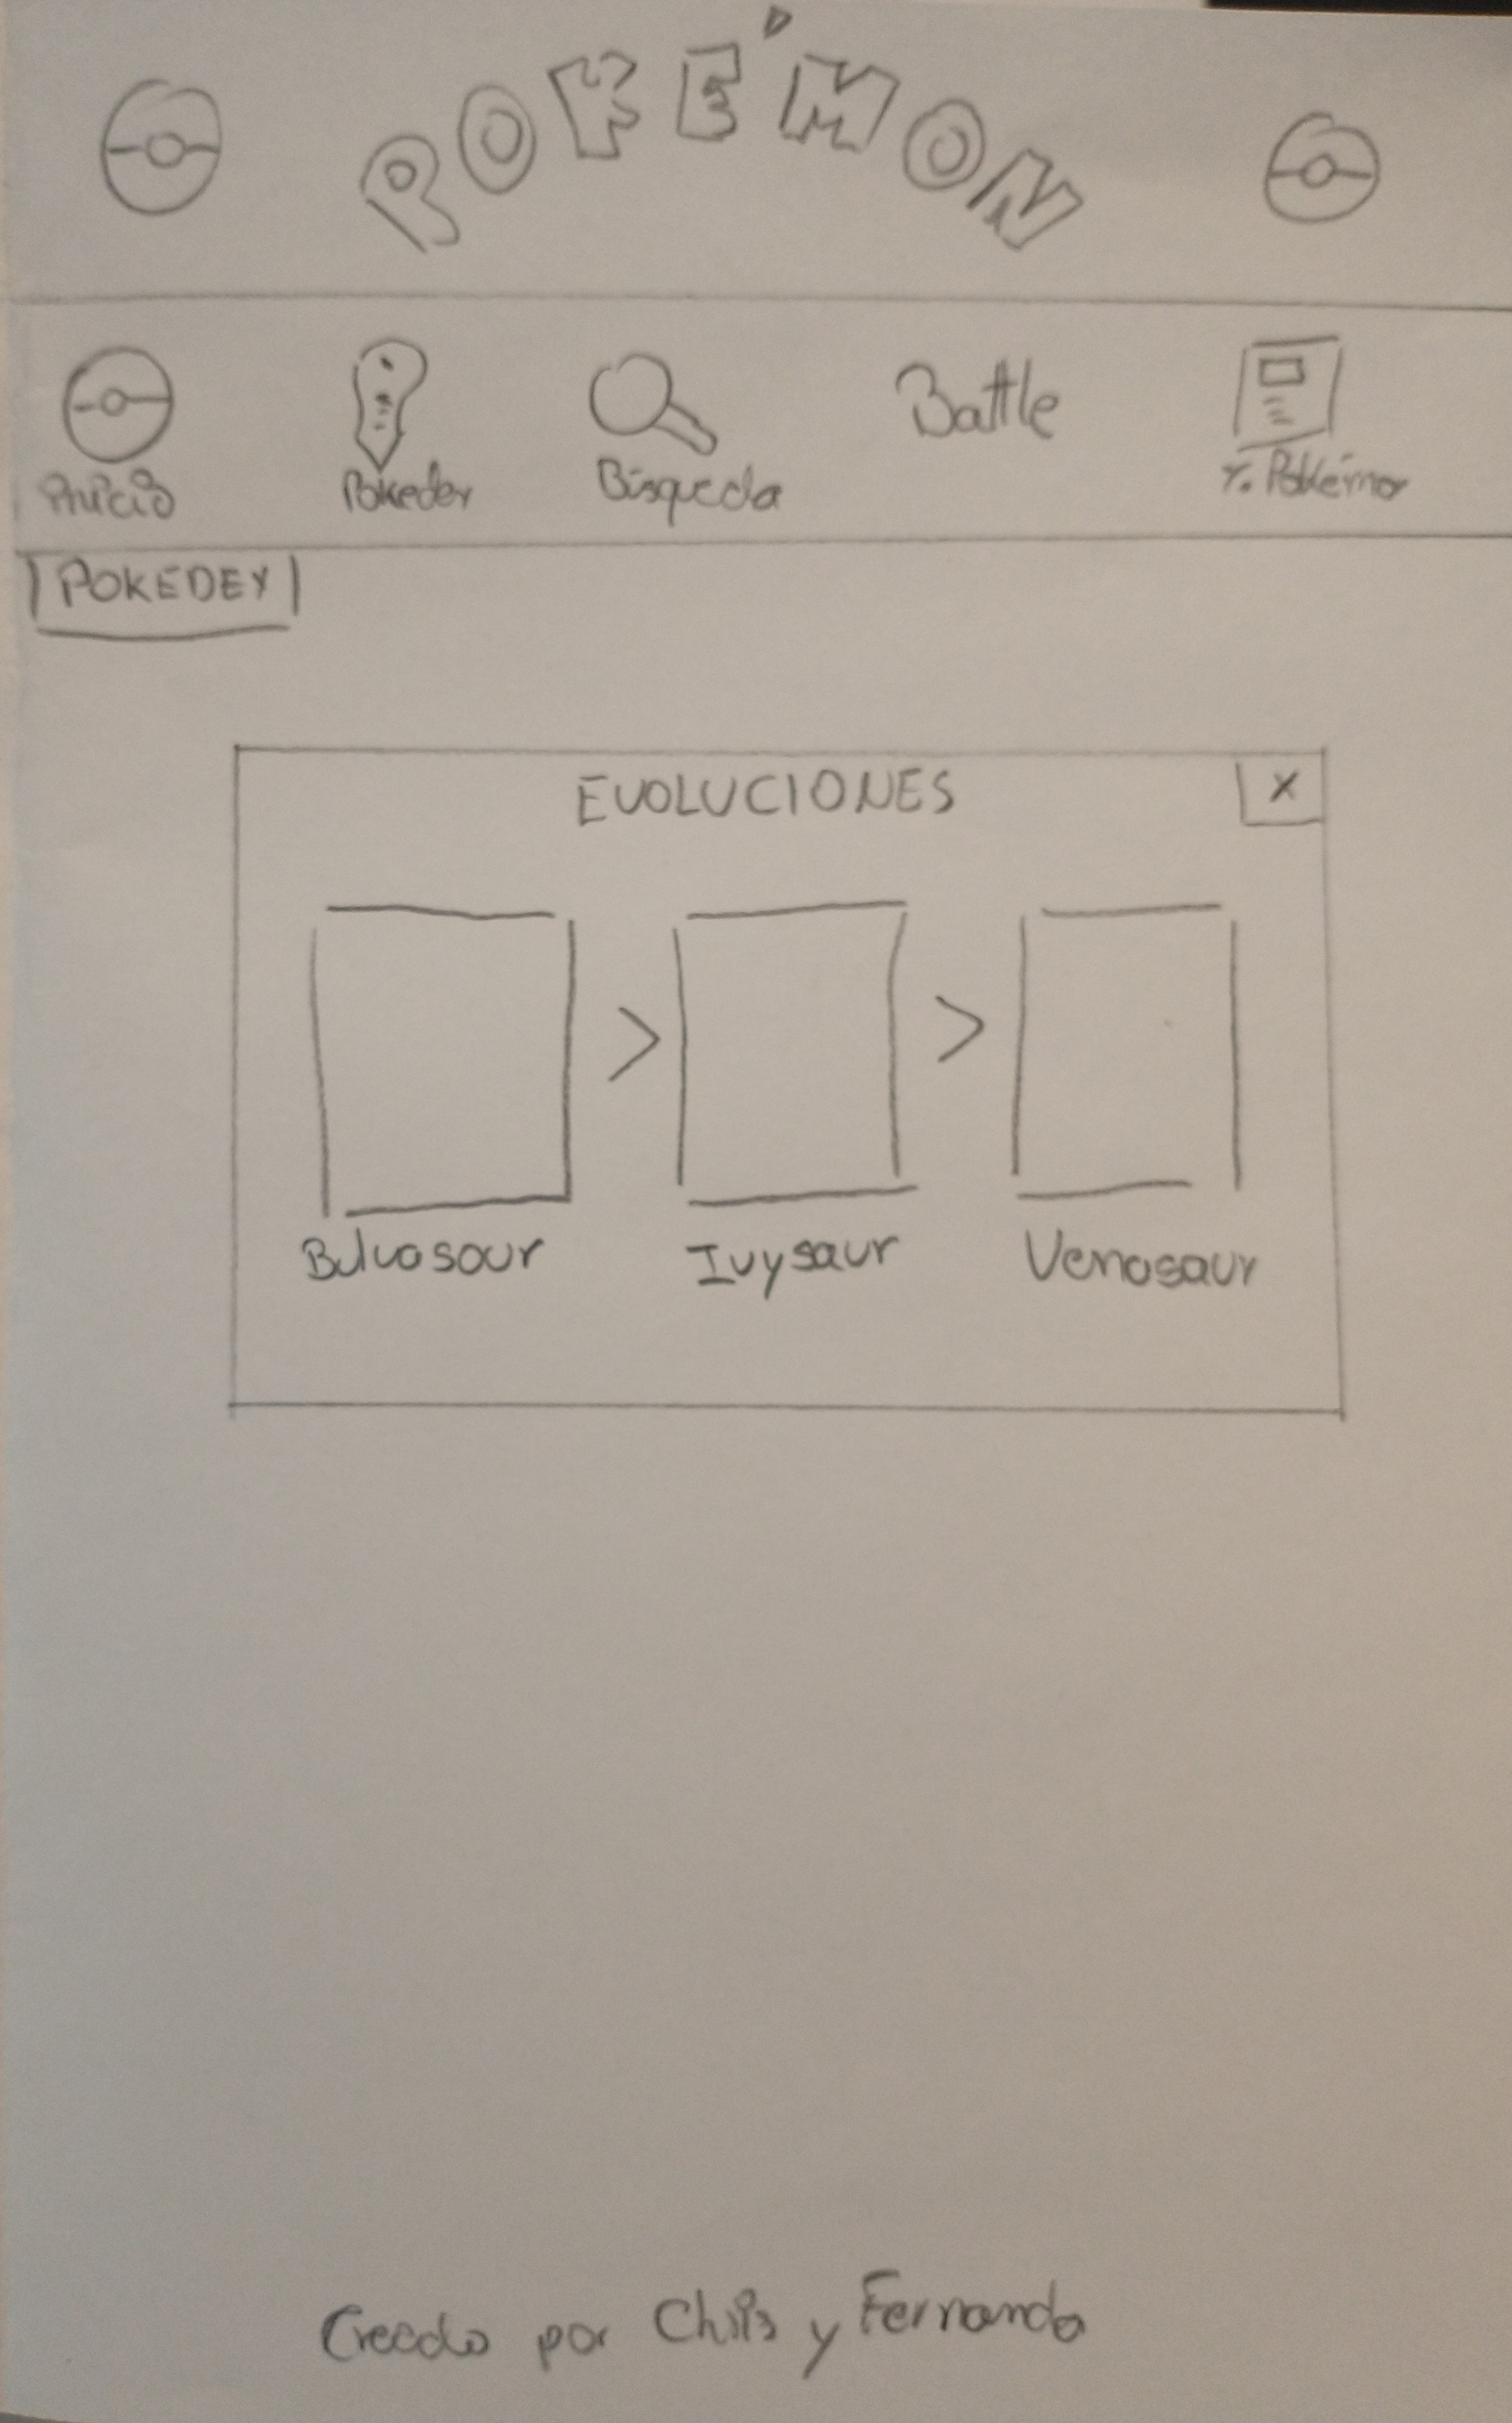 POKÉMON
Inicio Pokedex Búsqueda Battle T. Pokémon
POKEDEX
EVOLUCIONES X
> >
Bulvasour Ivysaur Venosaur
Creado por Chris y Fernando